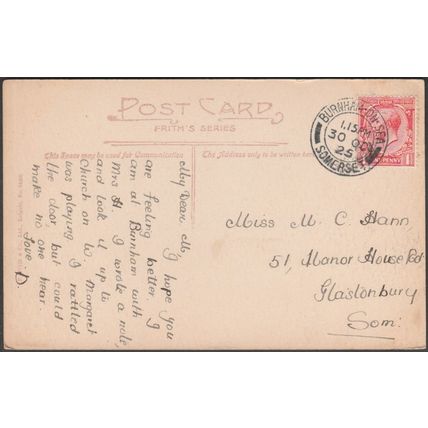 POST CARD
FRITH'S SERIES
This Space may be used for Communication
The Address only to be written here
BURNHAM-ON-SEA
1.15 PM
30 OC
25
SOMERSET
PENNY
My Dear M,
I hope you
are feeling better. I
am at Burnham with
Mrs H. I wrote a note
and took it up to
Church on W. Margaret
was playing I rattled
the door but could
make no one hear.
Love D.
Miss M. C. Hann
51, Manor House Rd
Glastonbury
Som: